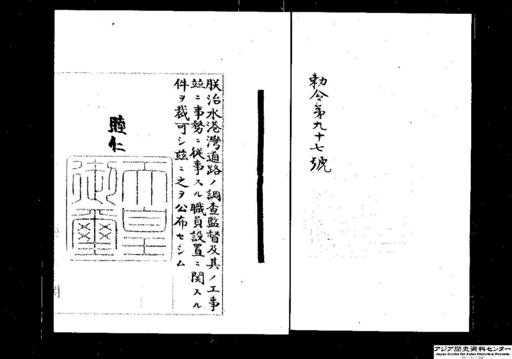 勅令第九十七號
朕治水港灣道路ノ調査監督及其ノ工事
竝ニ事務ニ從事スル職員設置ニ關スル
件ヲ裁可シ茲ニ之ヲ公布セシム
睦仁
天皇
御璽
アジア歴史資料センター
Japan Center for Asian Historical Records